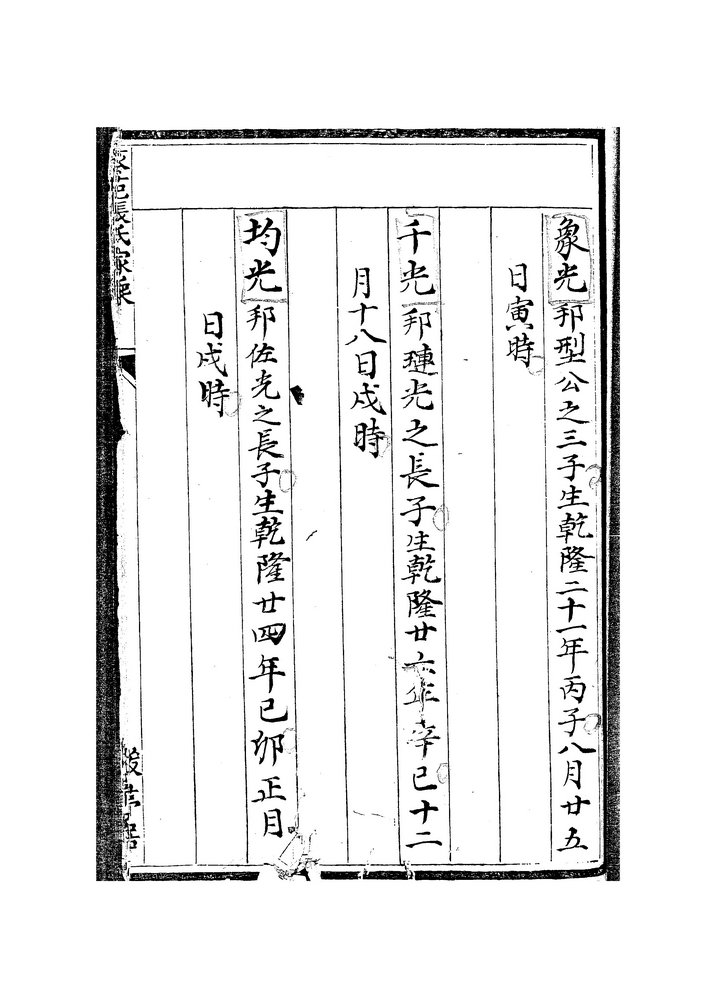 象光邦型公之三子生乾隆二十一年丙子八月廿五
日寅時
千光邦璉光之長子生乾隆廿六年辛巳十二
月十八日戌時
均光邦佐光之長子生乾隆廿四年己卯正月
日戌時
張氏家